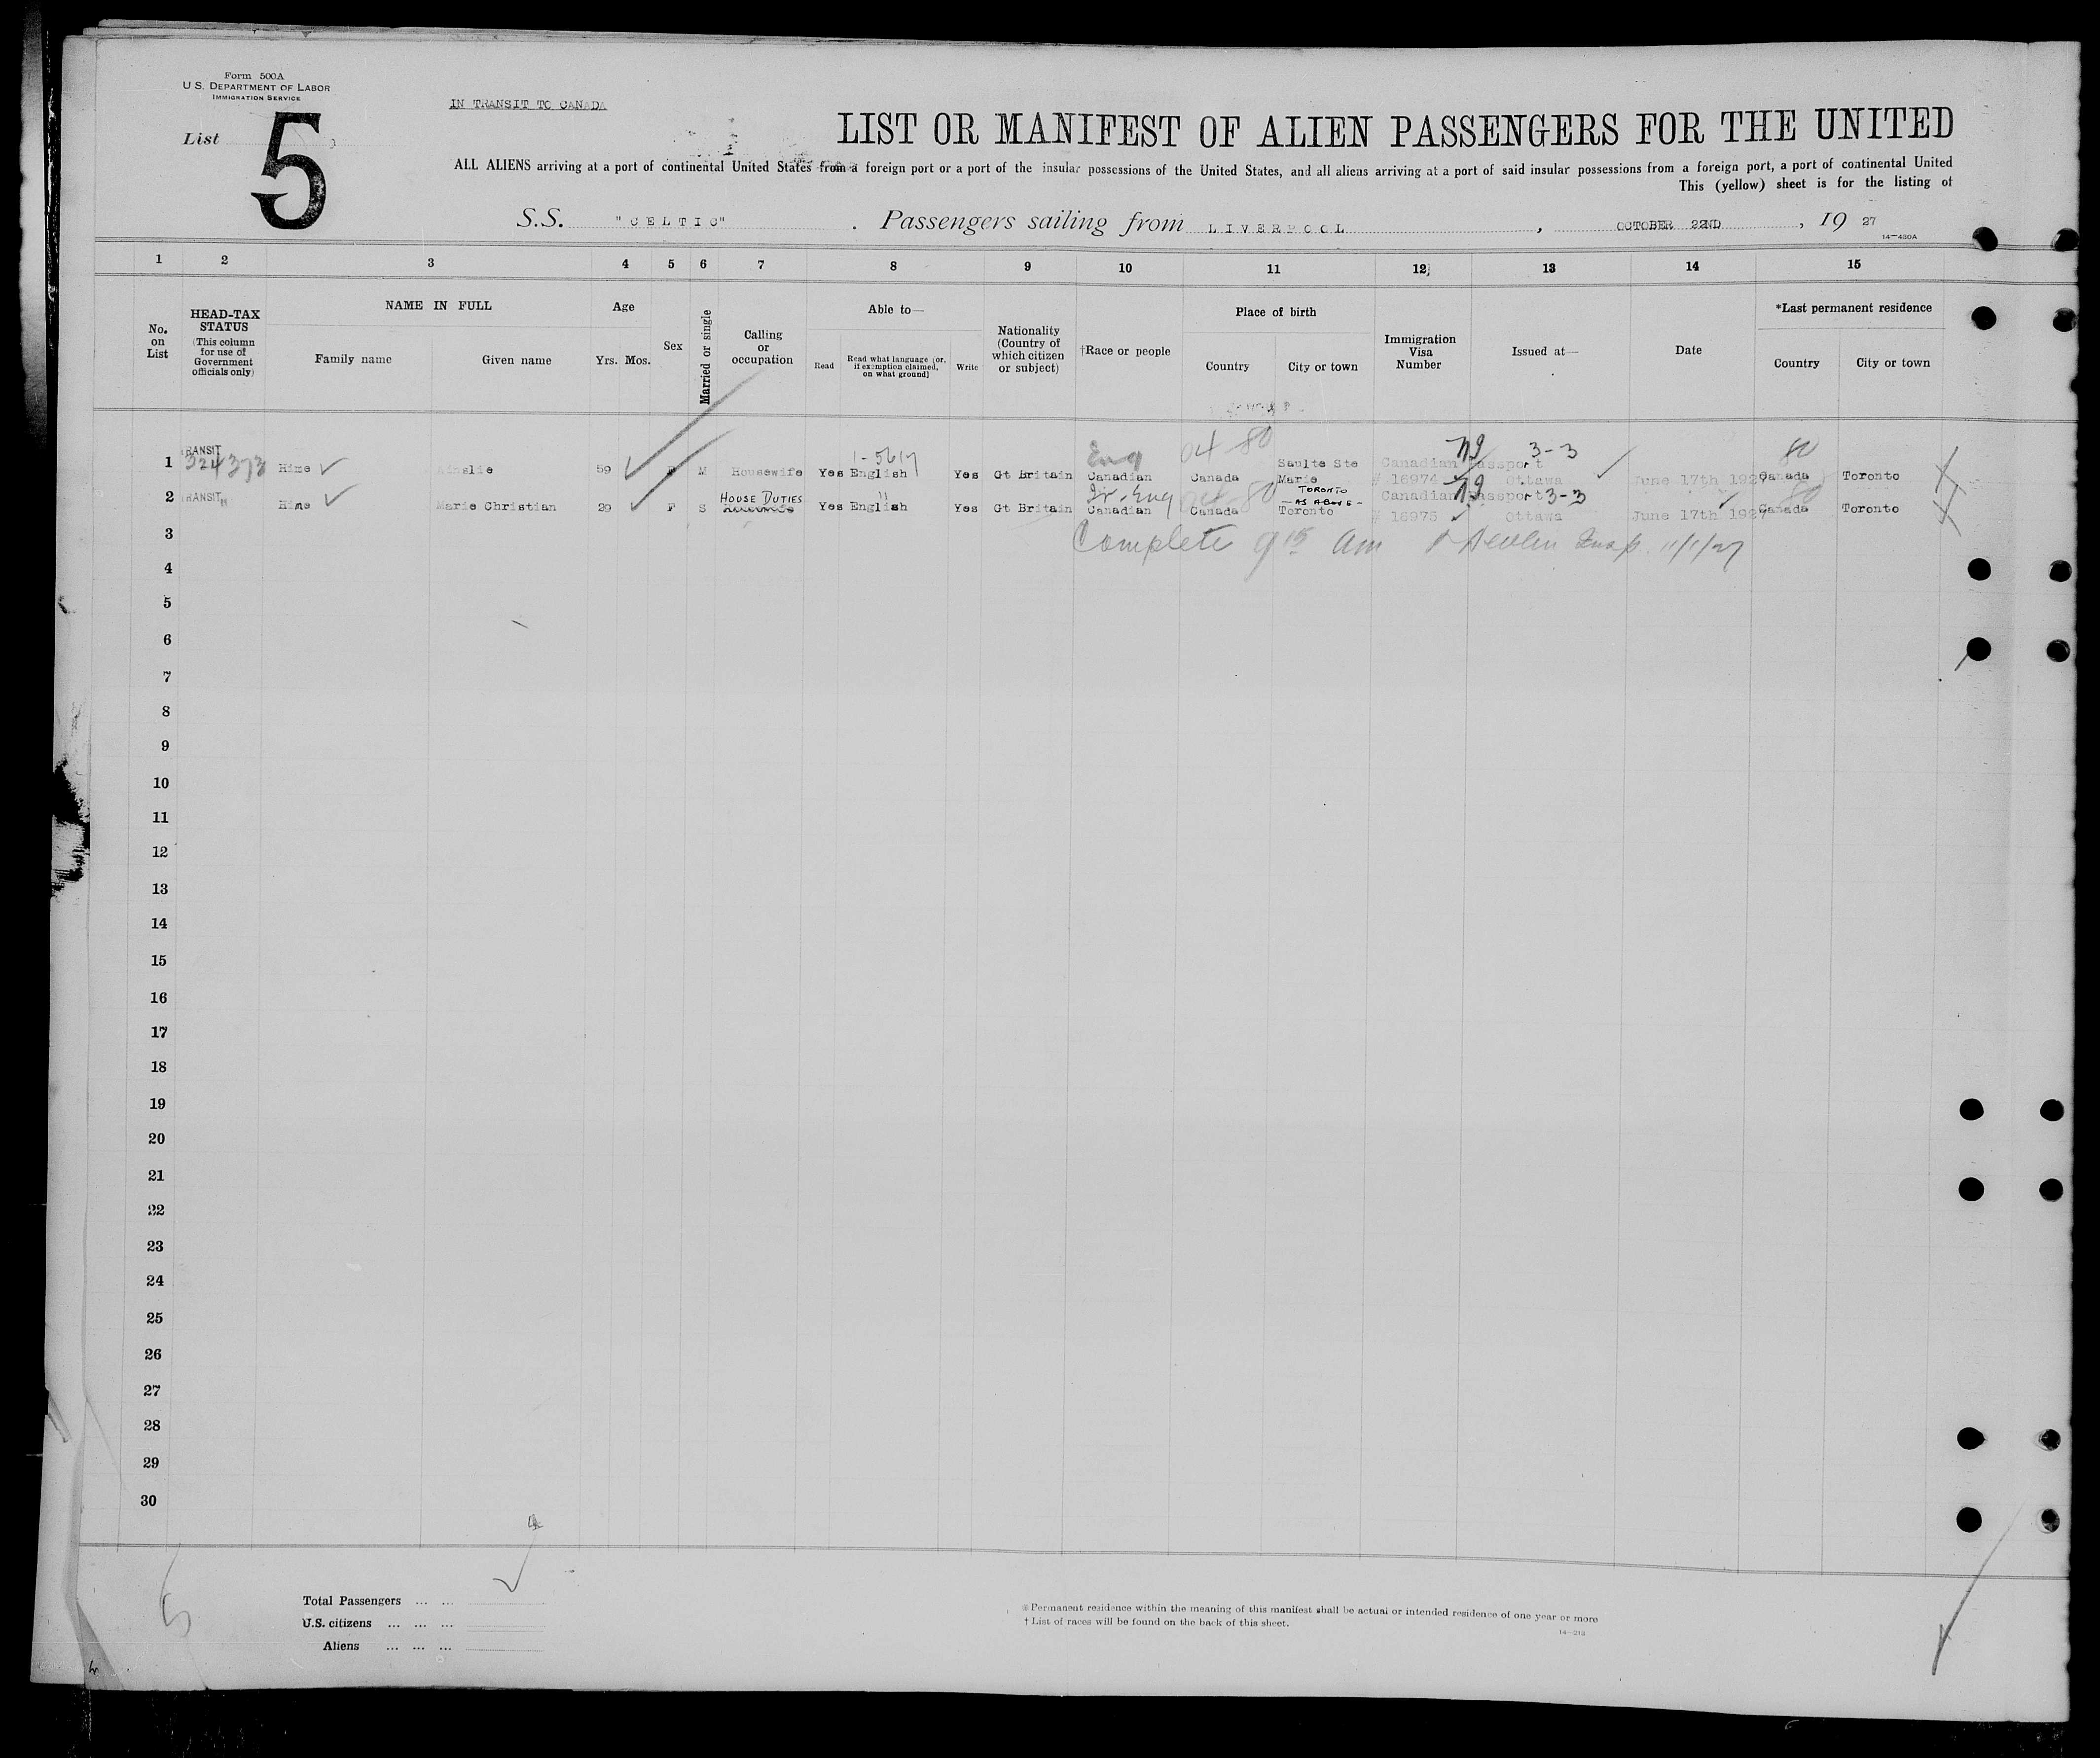 Form 500A
U.S. DEPARTMENT OF LABOR
IMMIGRATION SERVICE
List 5
IN TRANSIT TO CANADA
LIST OR MANIFEST OF ALIEN PASSENGERS FOR THE UNITED
ALL ALIENS arriving at a port of continental United States from a foreign port or a port of the insular possessions of the United States, and all aliens arriving at a port of said insular possessions from a foreign port, a port of continental United
This (yellow) sheet is for the listing of
S.S. "CELTIC". Passengers sailing from LIVERPOOL, OCTOBER 22ND, 19 27
14-430A
1 2 3 4 5 6 7 8 9 10 11 12 13 14 15
No. on List
HEAD-TAX STATUS (This column for use of Government officials only)
NAME IN FULL
Family name Given name
Age
Yrs. Mos.
Sex
Married or single
Calling or occupation
Able to—
Read Read what language (or, if exemption claimed, on what ground) Write
Nationality (Country of which citizen or subject)
†Race or people
Place of birth
Country City or town
Immigration Visa Number
Issued at—
Date
*Last permanent residence
Country City or town
TRANSIT 1-5617 Eng 04 80 ng 3-3 80
1 324373 Hime 59 F M Housewife Yes English Yes Gt Britain Canadian Canada Saulte Ste Marie Canadian Passport # 16974 Ottawa June 17th 1927 Canada Toronto
HOUSE DUTIES " Ir. Eng 04 80 TORONTO — AS ABOVE — ng 3-3 80
2 TRANSIT " Hime Marie Christian 29 F S Yes English Yes Gt Britain Canadian Canada Toronto Canadian Passport # 16975 Ottawa June 17th 1927 Canada Toronto
3 Complete 9 15 am Insp. 11/1/27
4
5
6
7
8
9
10
11
12
13
14
15
16
17
18
19
20
21
22
23
24
25
26
27
28
29
30
Total Passengers ... ...
U.S. citizens ... ... ...
Aliens ... ... ...
*Permanent residence within the meaning of this manifest shall be actual or intended residence of one year or more
† List of races will be found on the back of this sheet.
14-213